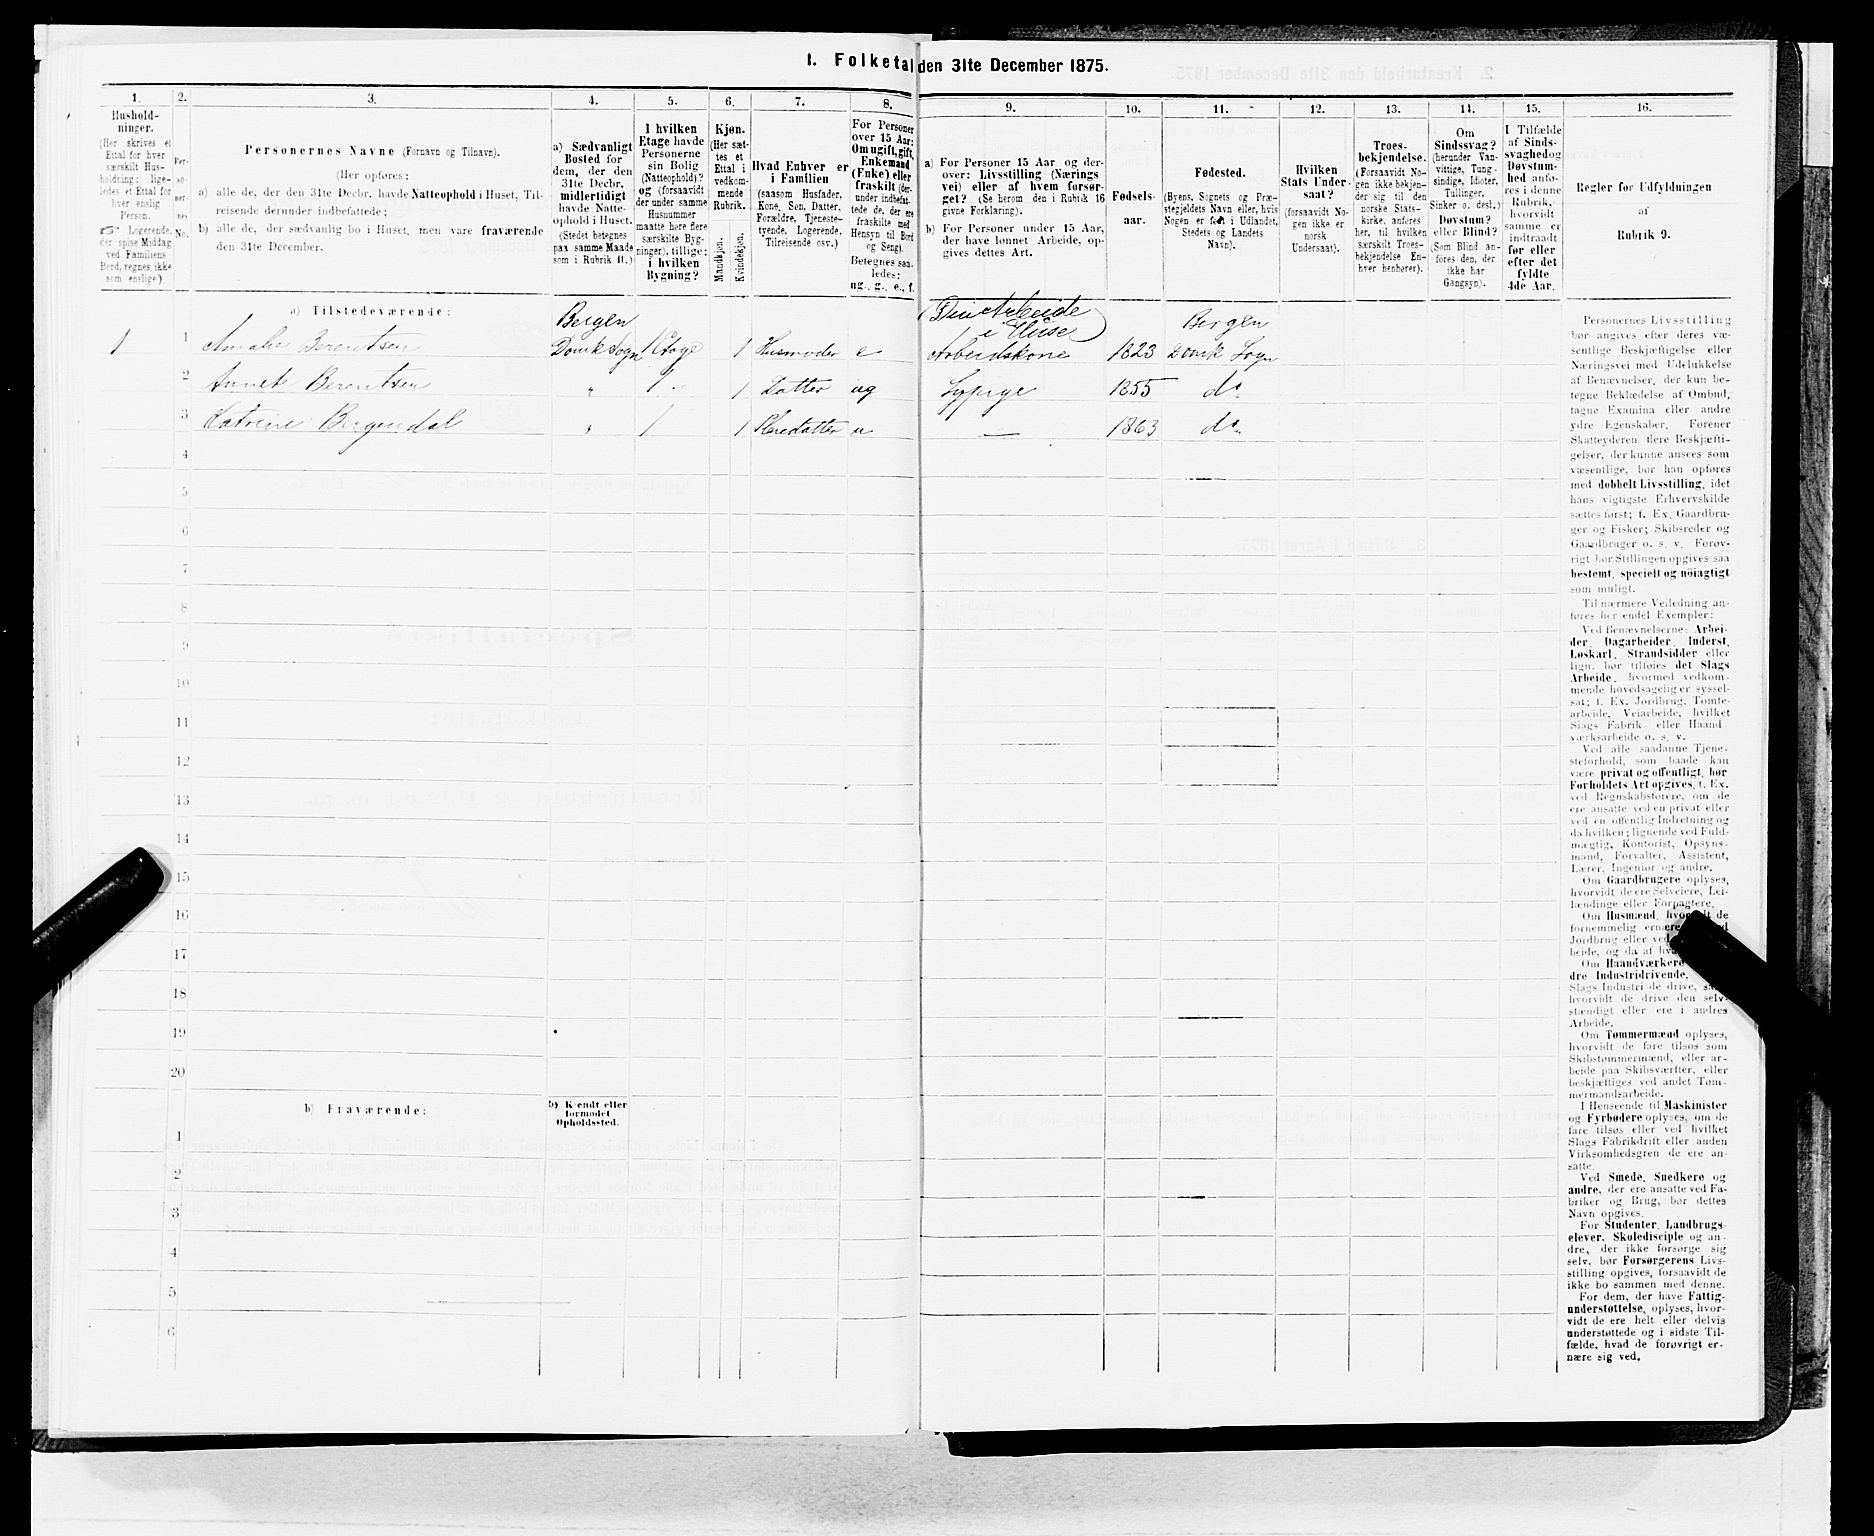 1. Folketal den 31te December 1875.
1. 2. 3. 4. 5. 6. 7. 8. 9. 10. 11. 12. 13. 14. 15. 16.
Hushold-
ninger.
(Her skrives et
Ettal for hver
særskilt Hus-
holdning; lige-
ledes et Ettal for
hver enslig
Person.
☞ Logerende,
der spise Middag
ved Familiens
Bord, regnes ikke
som enslige).
Per-
so-
ner-
nes
No.
Personernes Navne (Fornavn og Tilnavn).
(Her opføres:
a) alle de, der den 31te Decbr. havde Natteophold i Huset, Til-
reisende derunder indbefattede;
b) alle de, der sædvanlig bo i Huset, men vare fraværende
den 31te December.
a) Sædvanligt
Bosted for
dem, der den
31te Decbr.
midlertidigt
havde Natte-
ophold i Huset.
(Stedet betegnes
paa samme Maade
som i Rubrik 11.)
I hvilken
Etage havde
Personerne
sin Bolig
(Natteophold)?
og (forsaavidt
der under samme
Husnummer
maatte høre flere
særskilte Byg-
ninger), tillige:
i hvilken
Bygning?
Kjøn.
(Her sæt-
tes et
Ettal i
vedkom-
mende
Rubrik.
Mandkjøn.
Kvindekjøn.
Hvad Enhver er
i Familien
(saasom Husfader,
Kone, Søn, Datter,
Forældre, Tjeneste-
tyende, Logerende,
Tilreisende osv.)
For Personer
over 15 Aar:
Om ugift, gift,
Enkemand
(Enke) eller
fraskilt (der-
under indbefat-
tede de, der ere
fraskilte med
Hensyn til Bord
og Seng).
Betegnes saa-
ledes:
ug., g., e., f.
a) For Personer 15 Aar og der-
over: Livsstilling (Nærings
vei) eller af hvem forsør-
get? (Se herom den i Rubrik 16
givne Forklaring).
b) For Personer under 15 Aar,
der have lønnet Arbeide, op-
gives dettes Art.
Fødsels-
aar.
Fødested.
(Byens, Sognets og Præ-
stegjeldets Navn eller, hvis
Nogen er født i Udlandet,
Stedets og Landets
Navn).
Hvilken
Stats Under-
saat?
(forsaavidt No-
gen ikke er
norsk
Undersaat).
Troes-
bekjendelse.
(Forsaavidt No-
gen ikke bekjen-
der sig til den
norske Stats-
kirke, anføres
her, til hvilken
særskilt Troes-
bekjendelse En-
hver henhører).
Om
Sindssvag?
(herunder Van-
vittige, Tung-
sindige, Idioter,
Tullinger,
Sinker o. desl.)
Døvstum?
eller Blind?
(Som Blind an-
føres den, der
ikke har
Gangsyn).
I Tilfælde
af Sinds-
svaghed og
Døvstum-
hed anfø-
res i denne
Rubrik,
hvorvidt
samme er
indtraadt
før eller
efter det
fyldte
4de Aar.
Regler for Udfyldningen
af
Rubrik 9.
a) Tilstedeværende:
1 1 Amalie Berentsen Bergen Domk Sogn 1 Etage 1 Husmoder e Arbeidskone 1823 Bergen Domk Sogn
i Huse
2 Annete Berentsen " 1 " 1 Datter ug Sypige 1855 do
3 Katrine Bergendal " 1 1 Pleiedatter u — 1863 do
4
5
6
7
8
9
10
11
12
13
14
15
16
17
18
19
20
b) Fraværende:
b) Kjendt eller
formodet
Opholdssted.
1
2
3
4
5
6
Personernes Livsstilling
bør angives efter deres væ-
sentlige Beskjæftigelse eller
Næringsvei med Udelukkelse
af Benævnelser, der kun be-
tegne Beklædelse af Ombud,
tagne Examina eller andre
ydre Egenskaber. Forener
Skatteyderen flere Beskjæfti-
gelser, der kunne ansees som
væsentlige, bør han opføres
med dobbelt Livsstilling, idet
hans vigtigste Erhvervskilde
sættes først; f. Ex. Gaardbru-
ger og Fisker; Skibsreder og
Gaardbruger o. s. v. Forøv-
rigt bør Stillingen opgives saa
bestemt, specielt og nøiagtigt
som muligt.
Til nærmere Veiledning an-
føres her endel Exempler:
Ved Benævnelserne: Arbei-
der, Dagarbeider, Inderst,
Løskarl, Strandsidder eller
lign. bør tilføies det Slags
Arbeide, hvormed vedkom-
mende hovedsagelig er syssel-
sat; f. Ex. Jordbrug, Tomte-
arbeide, Veiarbeide, hvilket
Slags Fabrik- eller Haand-
værksarbeide o. s. v.
Ved alle saadanne Tjene-
steforhold, som baade kan
være privat og offentligt, bør
Forholdets Art opgives, f. Ex.
ved Regnskabsførere, om de
ere ansatte ved en privat eller
ved en offentlig Indretning og
da hvilken; lignende ved Fuld-
mægtig, Kontorist, Opsyns-
mand, Forvalter, Assistent,
Lærer, Ingeniør og andre.
Om Gaardbrugere oplyses,
hvorvidt de ere Selveiere, Lei-
lændinge eller Forpagtere.
Om Husmænd, de
fornemmelig
Jordbrug eller ved
beide, og da af
Om Haandværkere
dre Industridrivende,
Slags Industri de drive,
hvorvidt de drive den selv-
stændigt eller ere i andres
Arbeide.
Om Tømmermænd oplyses,
hvorvidt de fare tilsøs som
Skibstømmermænd, eller ar-
beide paa Skibsværfter, eller
beskjæftiges ved andet Tøm-
mermandsarbeide.
I Henseende til Maskinister
og Fyrbødere oplyses, om de
fare tilsøs eller ved hvilket
Slags Fabrikdrift eller anden
Virksomhedsgren de ere an-
satte.
Ved Smede, Snedkere og
andre, der ere ansatte ved Fa-
briker og Brug, bør dettes
Navn opgives.
For Studenter, Landbrugs-
elever, Skoledisciple og an-
dre, der ikke forsørge sig
selv, bør Forsørgerens Livs-
stilling opgives, forsaavidt de
ikke bo sammen med denne.
For dem, der have Fattig-
understøttelse, oplyses, hvor-
vidt de ere helt eller delvis
understøttede og i sidste Til-
fælde, hvad de forøvrigt er-
nære sig ved.